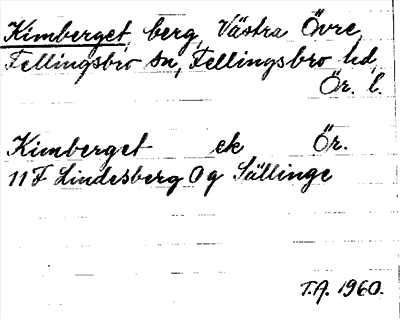 Kimberget, berg, Västra Övre,
Fellingsbro sn, Fellingsbro hd,
Ör. l.
Kimberget ek Ör.
11 F Lindesberg 0 g Sällinge
T.A. 1960.